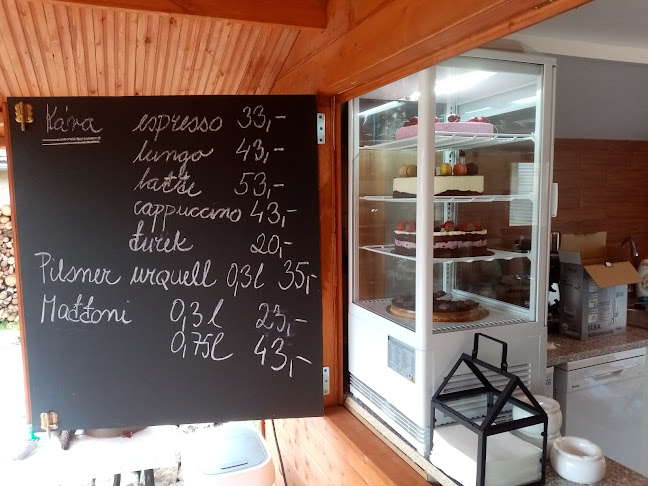 Káva espresso 33,-
lungo 43,-
latte 53,-
cappuccino 43,-
turek 20,-
Pilsner urquell 0,3l 35,-
Mattoni 0,3l 23,-
0,75l 43,-